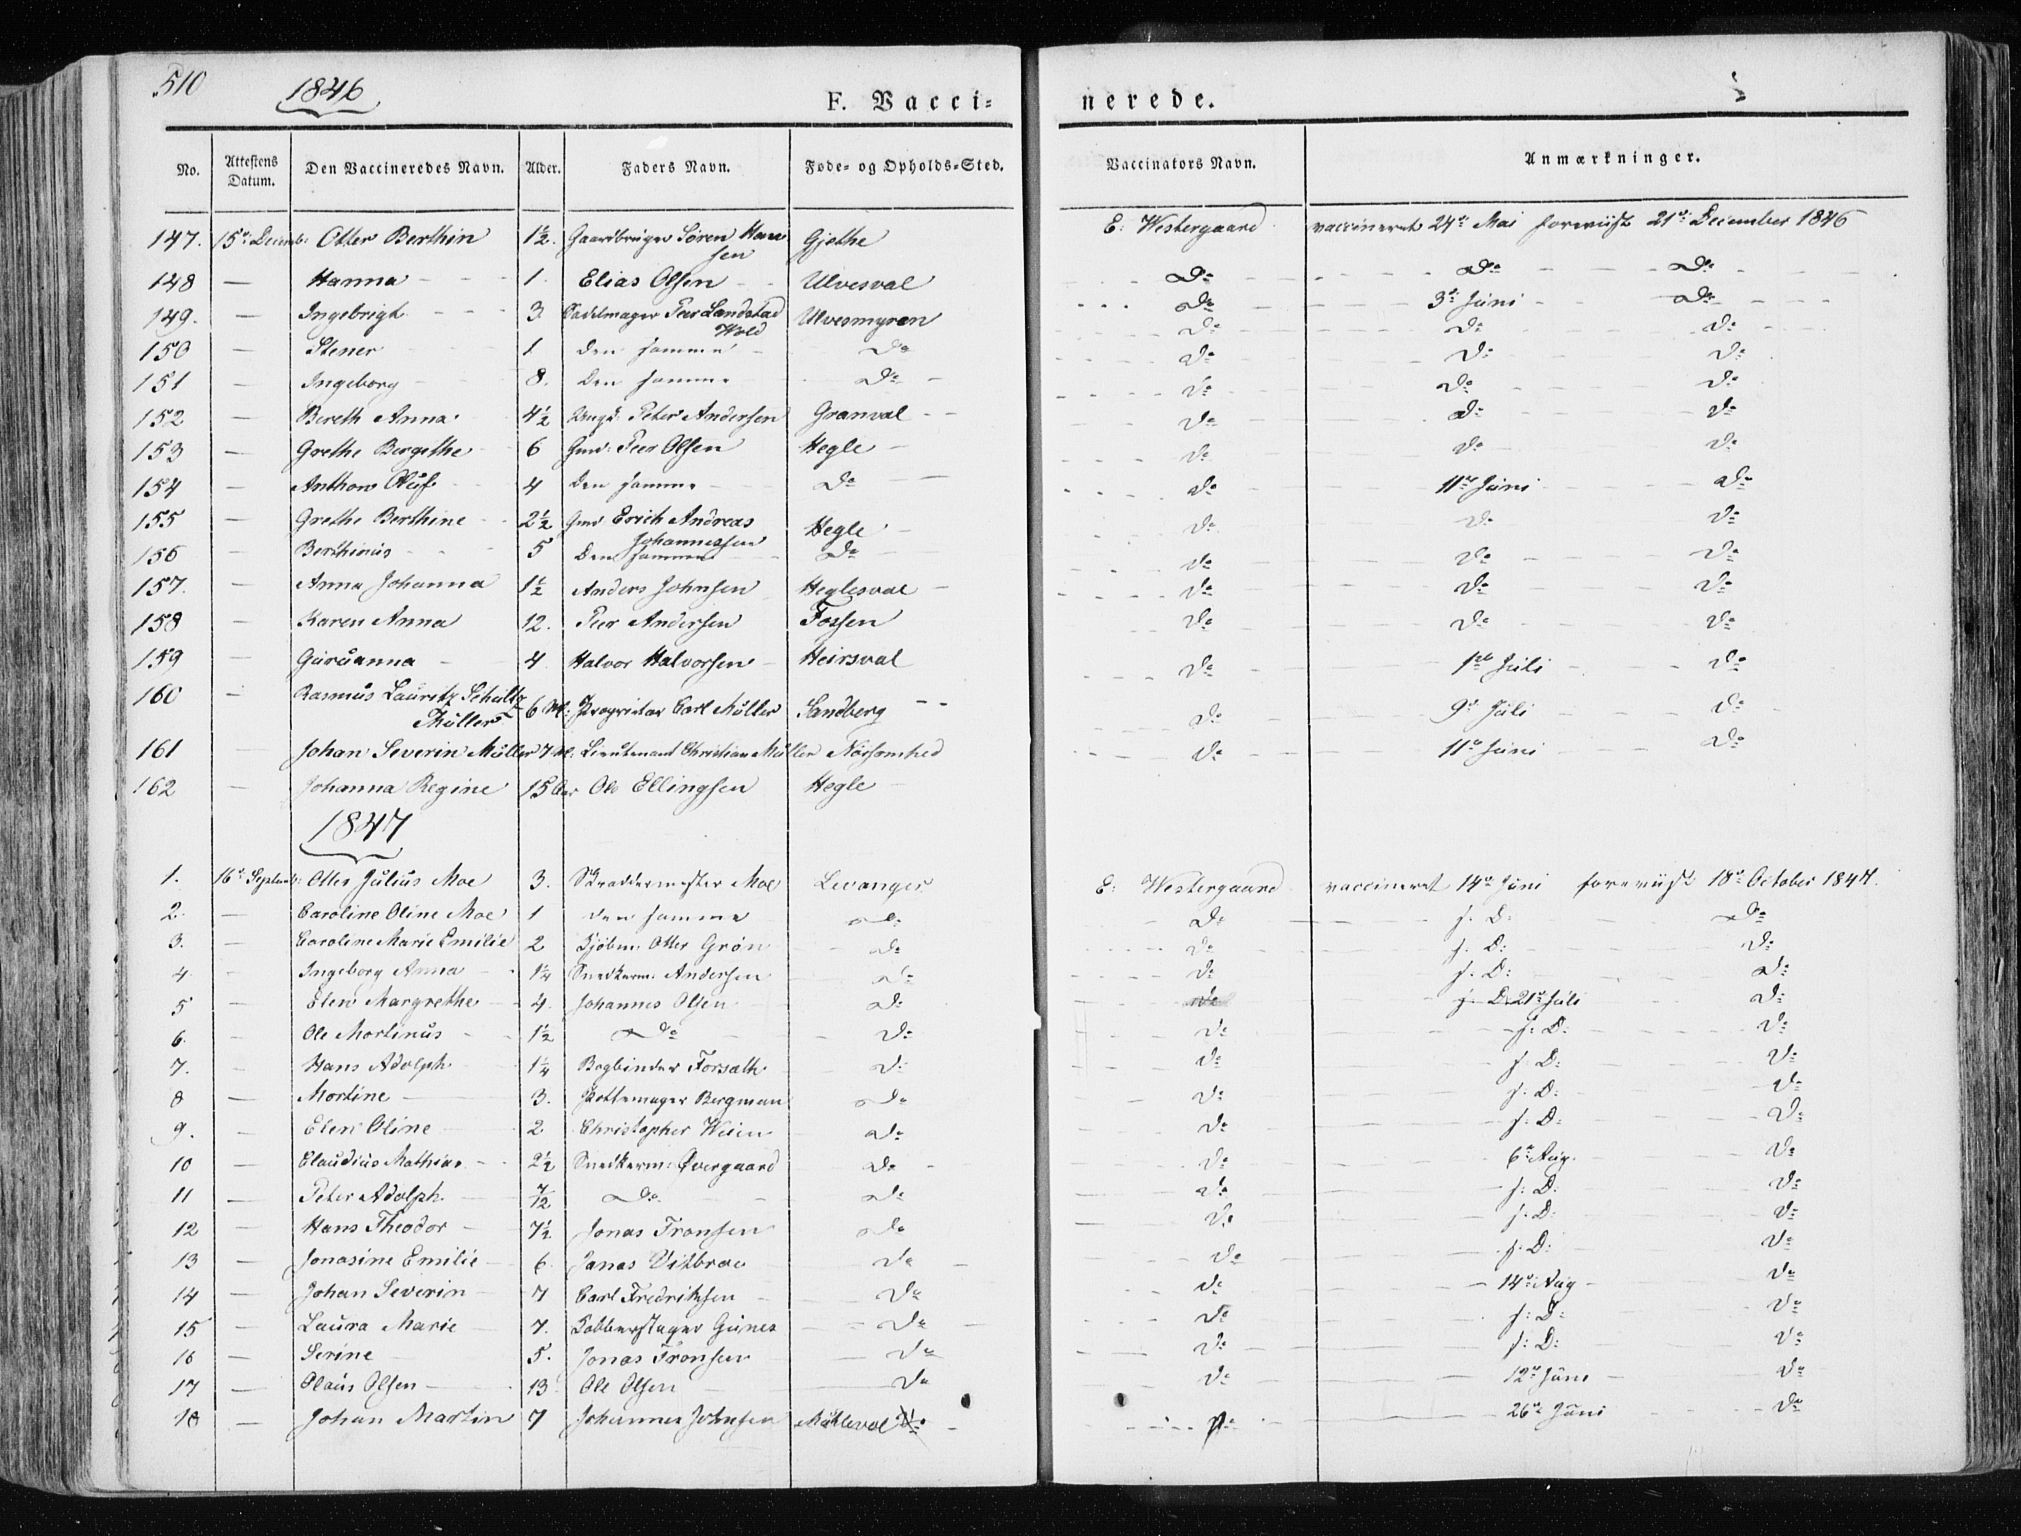 510 1846 F. Vacci= nerede.
No. Attestens Datum. Den Vaccineredes Navn. Alder. Faders Navn. Føde= og Opholds=Sted. Vaccinators Navn. Anmærkninger.
147. 15de Decemb: Otter Berthin 1½. Gaardbruger Søren Hansen Gjethe E: Westergaard vaccineret 24de Mai foreviist 21de December 1846
148 — Hanna 1. Elias Olsen Ulvesval Do Do Do
149. — Ingebrigt 3 Sadelmager Peer Landstad Wold Ulvesmyren Do 3de Juni Do
150 — Stener 1 Den samme Do Do Do Do
151 — Ingeborg 8. Den samme Do Do Do Do
152 — Bereth Anna 4½ Peter Andersen Granval Do Do Do
153 — Grethe Bergithe 6 Gmd: Peer Olsen Hegle Do Do Do
154 — Anthon Oluf 4 Den samme Do Do 11te Juni Do
155 — Grethe Berthine 2½ Gmd Erich Andreas Johannessen Hegle Do Do Do
156 — Berthinus 5 Den samme Do Do Do Do
157. — Anna Johanna 1½ Anders Johnsen Heglesval Do Do Do
158 — Karen Anna 12. Peer Andersen Fossen Do Do Do
159 — Guruanna 4 Halvor Halvorsen Heirsval Do 1ste Juli Do
160 — Rasmus Lauritz Schultz Müller 6 M: Proprietar Carl Müller Sandberg Do 9de Juli Do
161 Johan Severin Müller 7 M: Lieutenant Christian Müller Norsomhed Do 11te Juni Do
162 — Johanna Regine 15 Aar Ole Ellingsen Hegle
1847
1. 16de Septemb: Otter Julius Moe 3. Skræddermester Moe Levanger E: Westergaard vaccineret 14de Juni foreviist 18de October 1847.
2. — Caroline Oline Moe 1 den samme Do Do s: D: Do
3. — Caroline Marie Emilie 2 Kjøbm: Otter Grøn Do Do s: D: Do
4 — Ingeborg Anna 1¼ Snedkerm: Andersen Do Do s: D: Do
5 — Elen Margrethe 4. Johannes Olsen Do Do s: D. 21de Juli Do
6. — Ole Mortinus 1½ Do Do Do s: D: Do
7. — Hans Adolph 1¼ Bogbinder Forsath Do Do s: D: Do
8 — Mortine 3. Pottemager Bergman Do Do s: D: Do
9. — Elen Oline 2 Christopher Weien Do Do s: D: Do
10 — Claudius Mathias 2½ Snedkerm: Øvergaard Do Do 6te Aug. Do
11 — Peter Adolph 7/12 Do Do Do s: D. Do
12 — Hans Theodor 7½ Jonas Fronsen Do Do s: D. Do
13 — Jonasine Emilie 6. Jonas Vitbroe Do Do s: D: Do
14 — Johan Severin 7 Carl Fredriksen Do Do 14de Aug Do
15 — Laura Marie 7. Kobberslager Gunes Do Do s: D: Do
16 — Serine 5. Jonas Fronsen Do Do s: D: Do
17 — Olaus Olsen 13 Ole Olsen Do Do 12te Juni Do
18 — Johan Martin 7 Johannes Johnsen Do Do 26de Juni Do